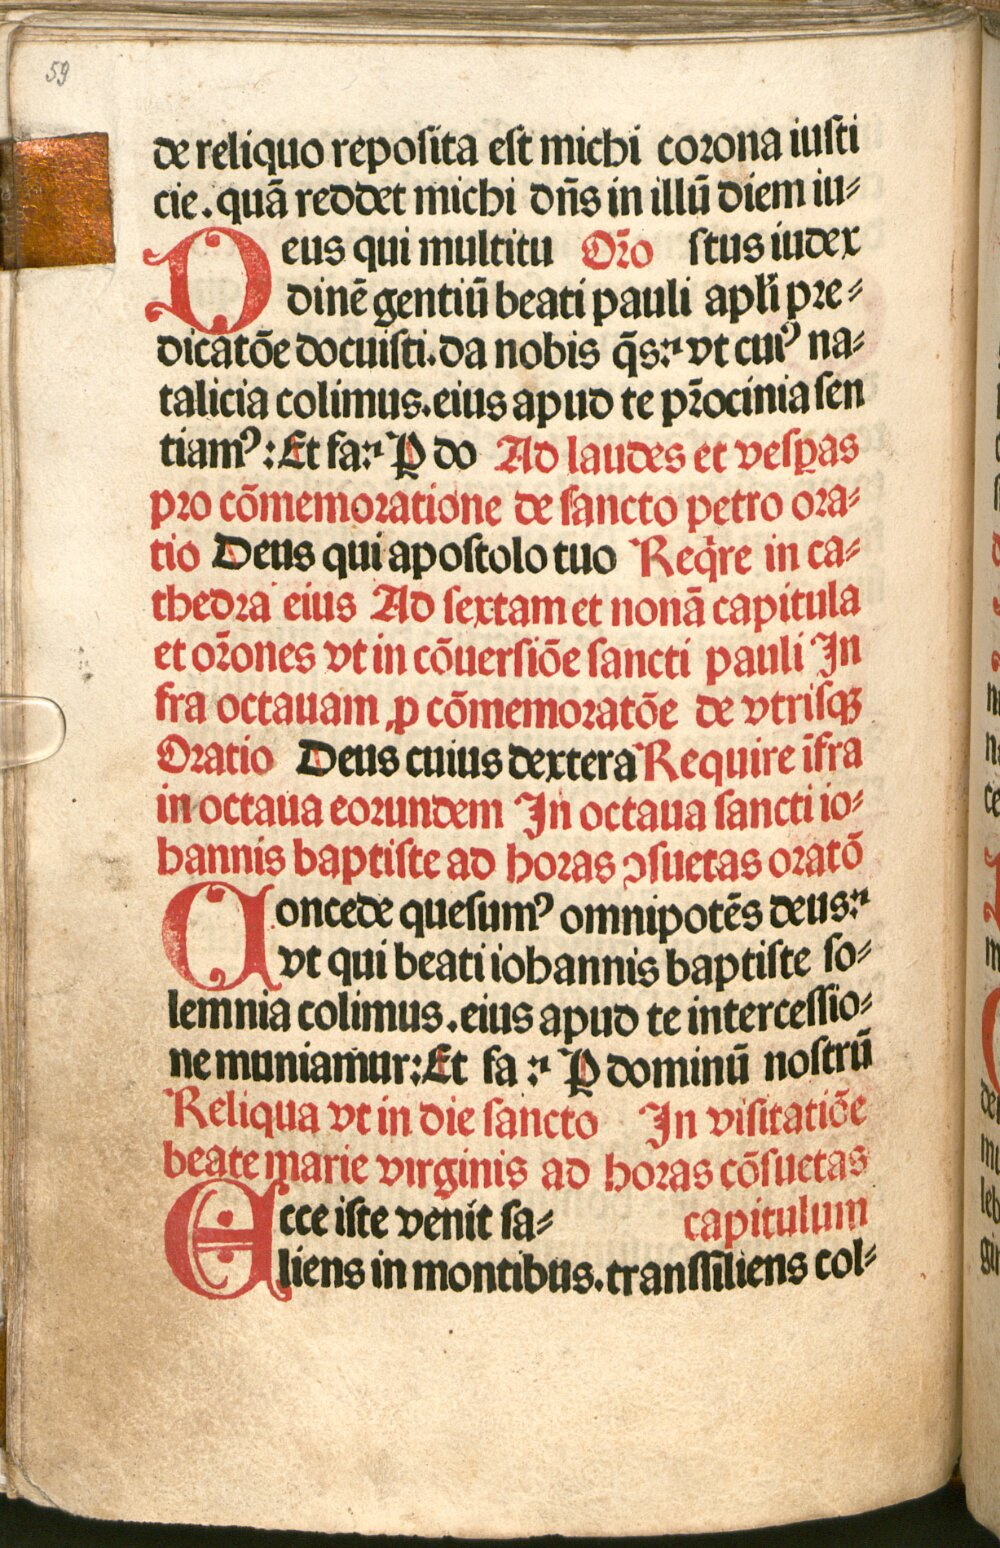 59
de reliquo reposita est michi corona iusti
cie. quā reddet michi dn̄s in illū diem iu⸗
Deus qui multitu Or̄o stus iudex
dinē gentiū beati pauli apl̄i pre⸗
dicatōe docuisti. da nobis q̄s: vt cuiꝰ na⸗
talicia colimus. eius apud te pr̄ocinia sen
tiamꝰ: Et fa: P do Ad laudes et vesꝑas
pro cōmemoratione de sancto petro ora⸗
tio Deus qui apostolo tuo Req̄re in ca⸗
thedra eius Ad sextam et nonā capitula
et or̄ones vt in cōuersiōe sancti pauli In
fra octauam ꝓ cōmemoratōe de vtrisqꝫ
Oratio Deus cuius dextera Require īfra
in octaua eorundem In octaua sancti io⸗
hannis baptiste ad horas ↄsuetas oratō
Concede quesumꝰ omnipotēs deus:
vt qui beati iohannis baptiste so⸗
lemnia colimus. eius apud te intercessio⸗
ne muniamur: Et fa: P dominū nostrū
Reliqua vt in die sancto In visitatiōe
beate marie virginis ad horas cōsuetas
Ecce iste venit sa⸗ capitulum
liens in montibus. transsiliens col⸗